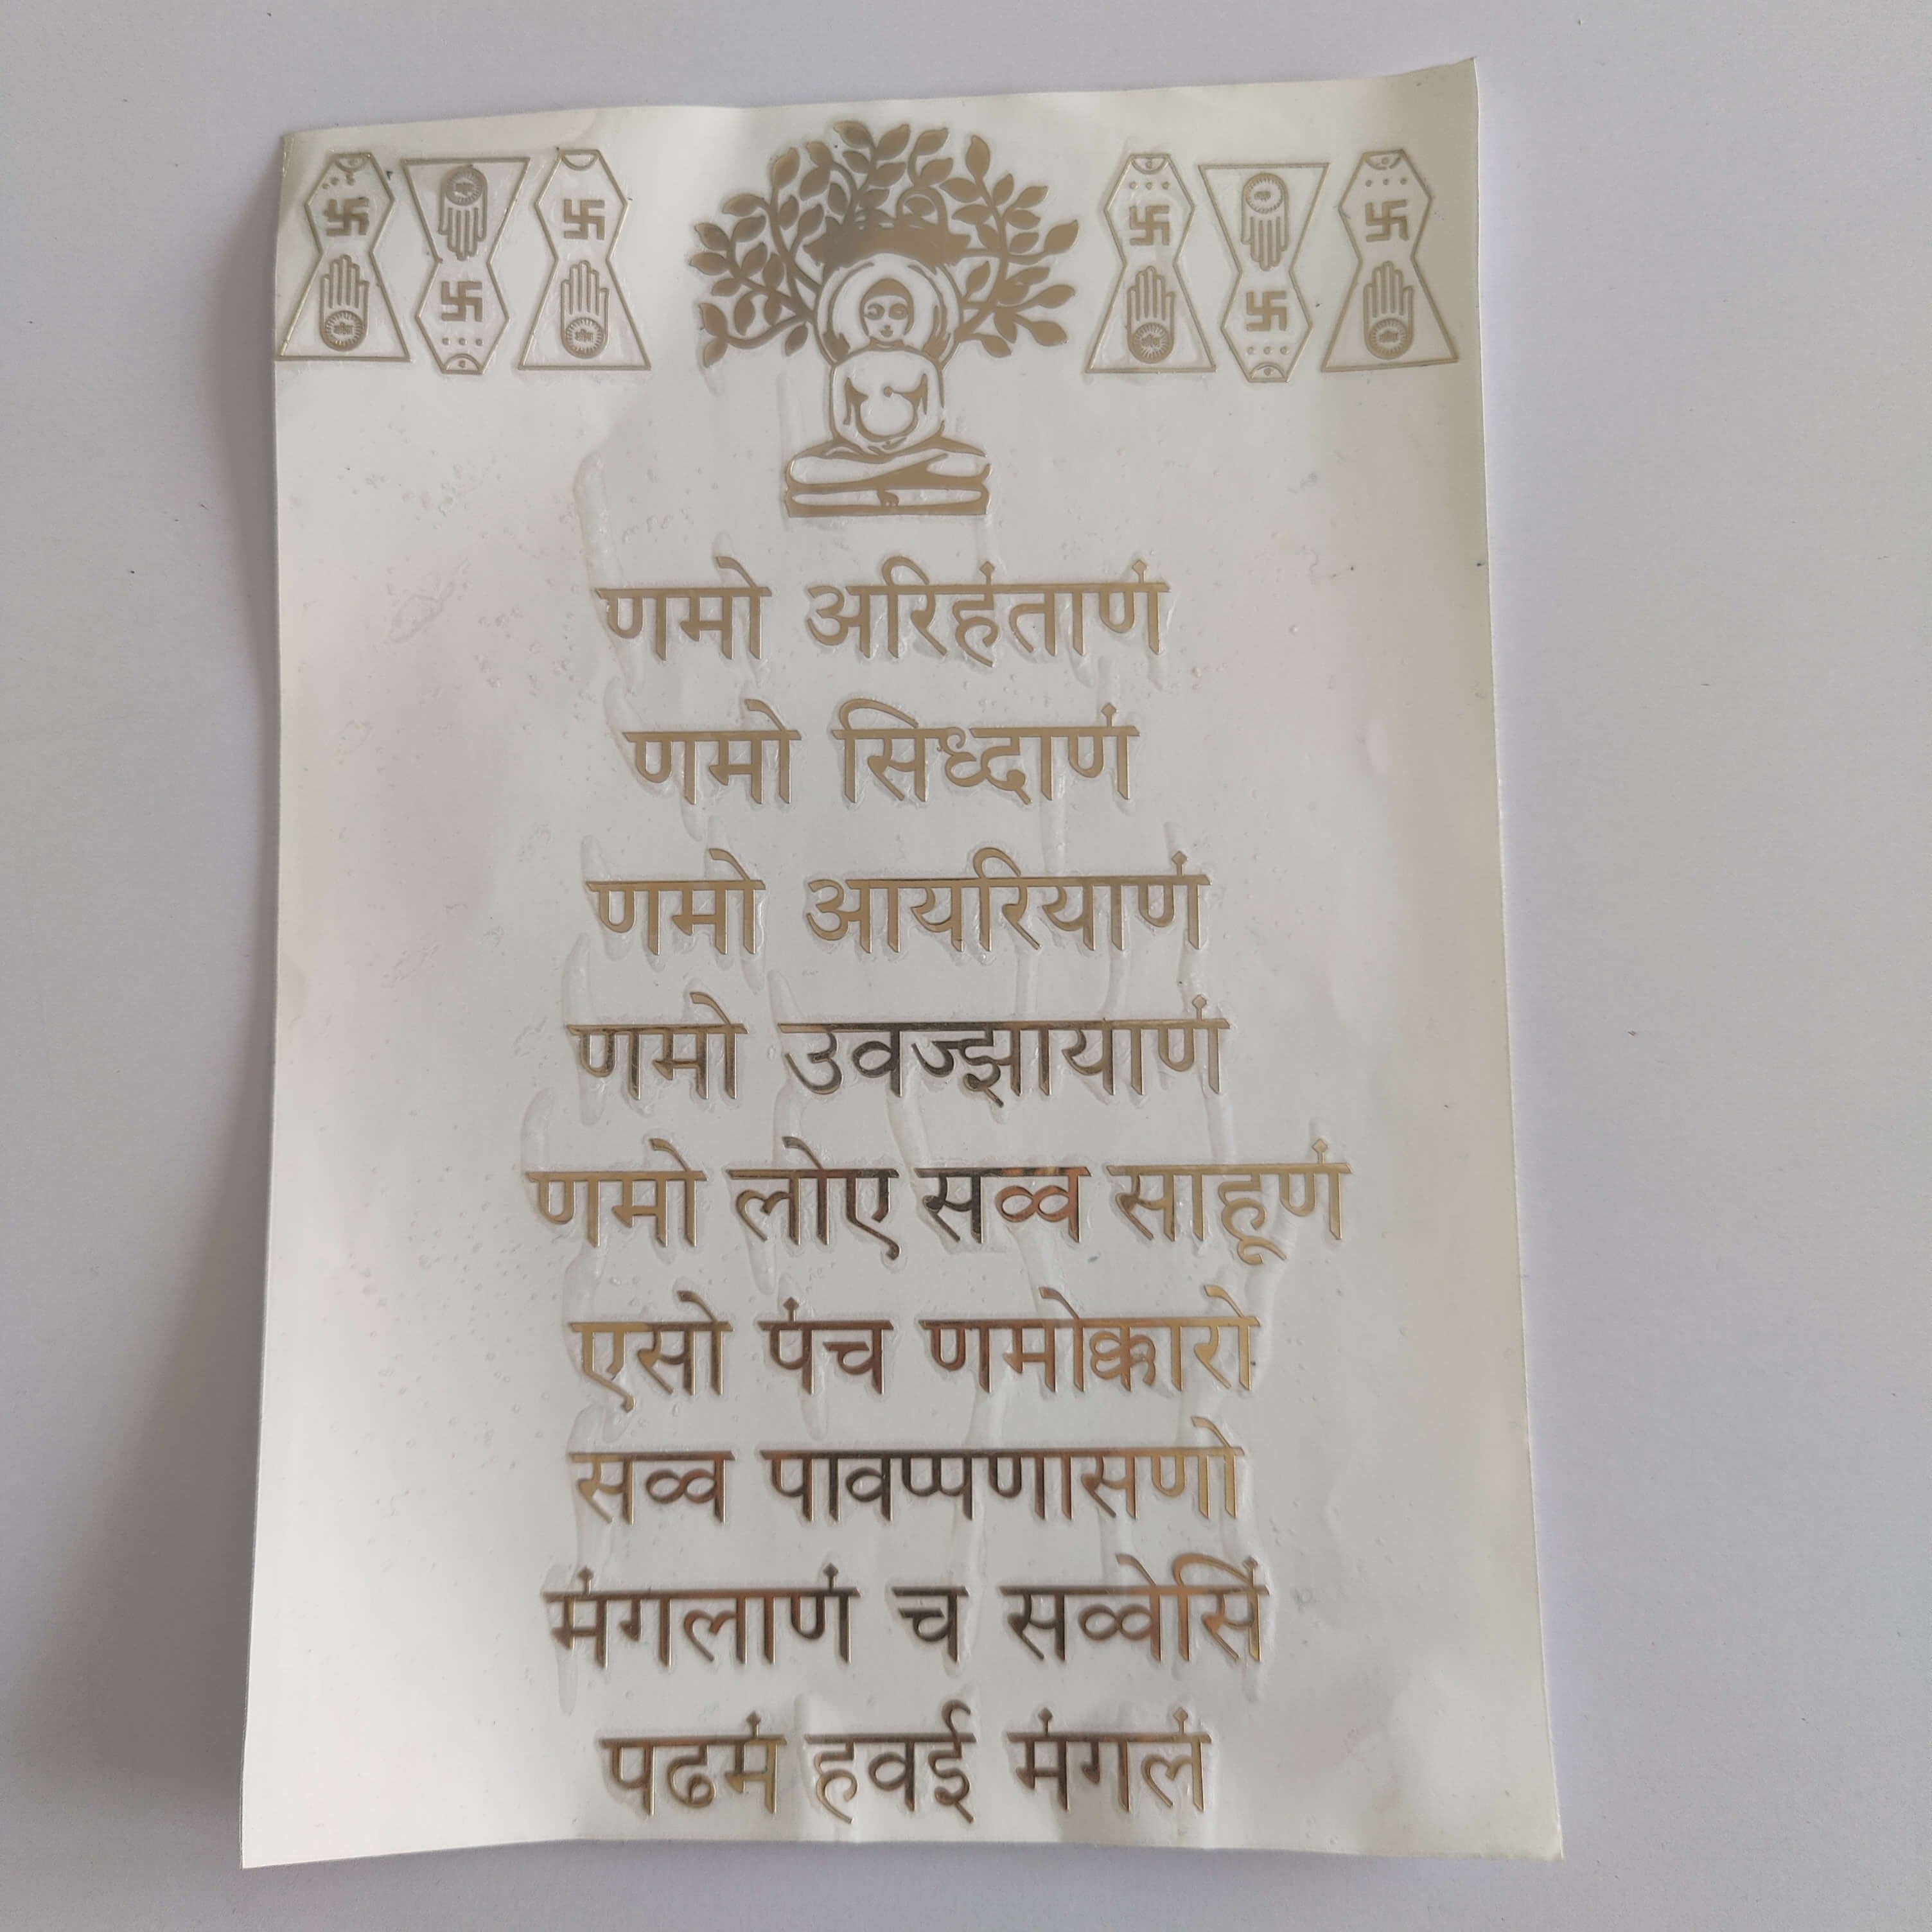 णमो अरिहंताणं
णमो सिध्दाणं
णमो आयरियाणं
णमो उवज्झायाणं
णमो लोए सव्व साहूणं
एसो पंच णमोक्कारो
सव्व पावप्पणासणो
मंगलाणं च सव्वेसिं
पढमं हवई मंगलं